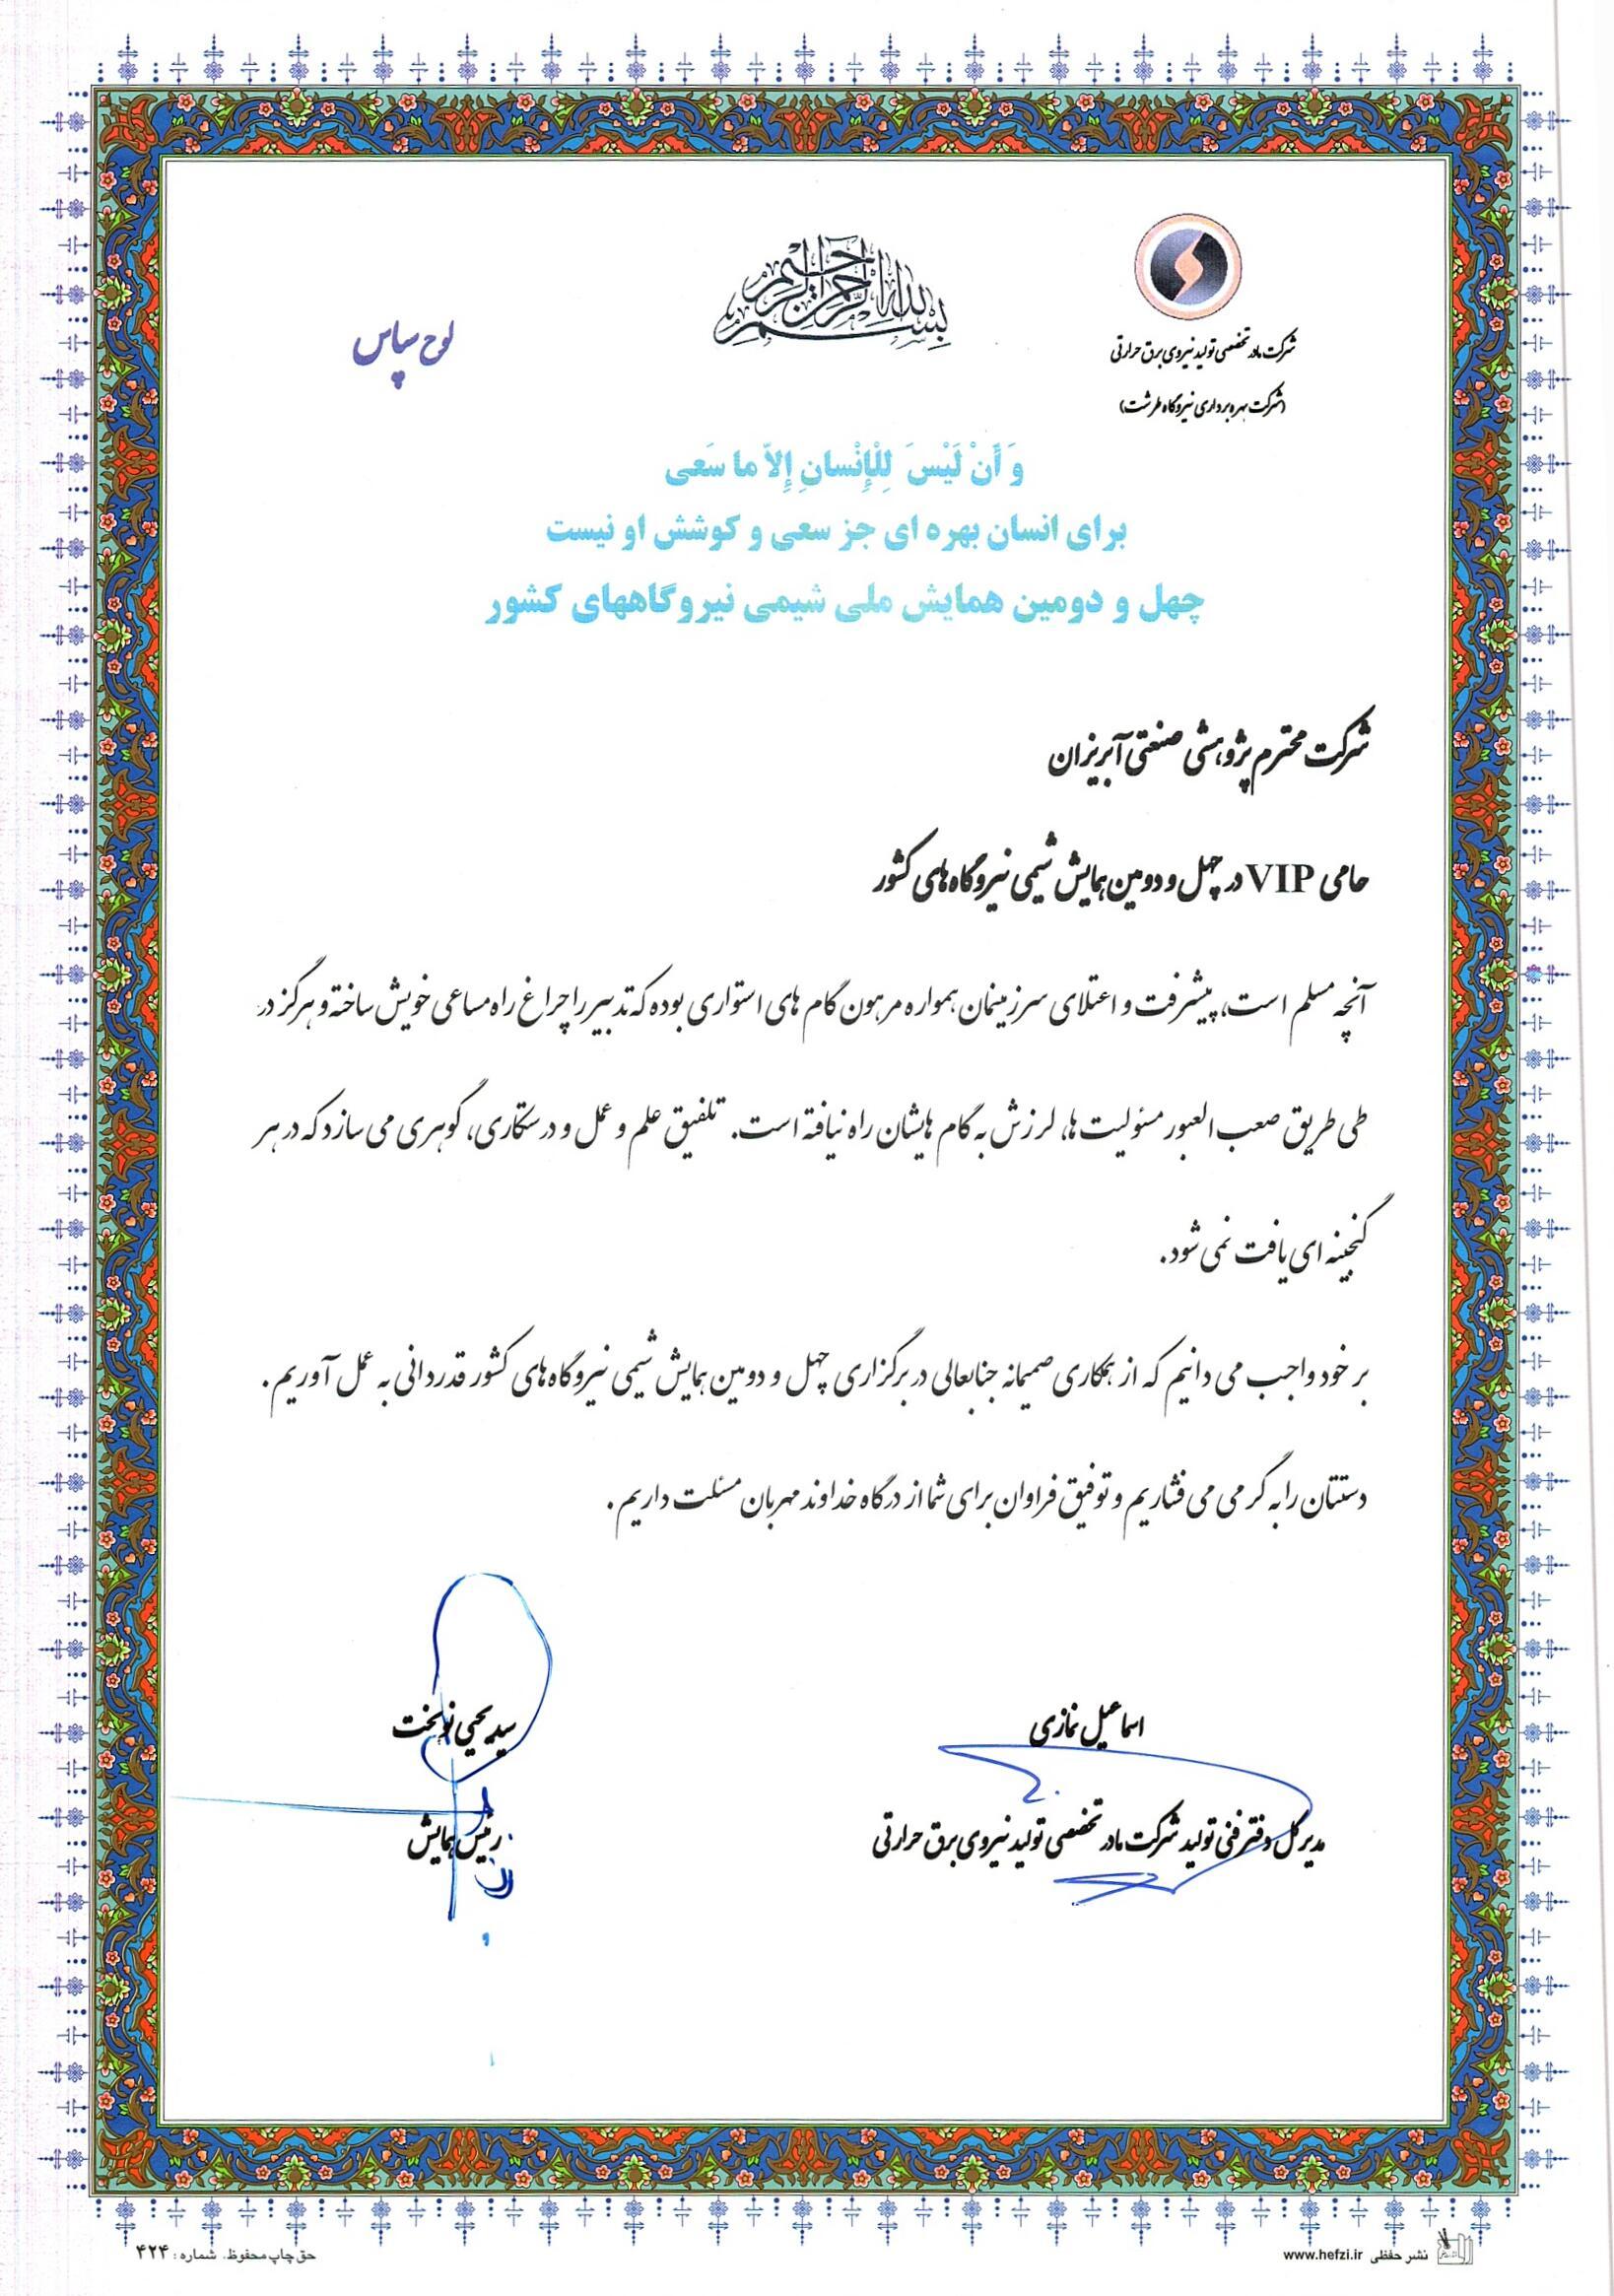 بسم الله الرحمن الرحیم
شرکت مادر تخصصی تولید نیروی برق حرارتی
(شرکت بهره برداری نیروگاه طرشت)
لوح سپاس
وَ أَنْ لَیْسَ لِلْإِنْسانِ إِلاّ ما سَعی
برای انسان بهره ای جز سعی و کوشش او نیست
چهل و دومین همایش ملی شیمی نیروگاههای کشور
شرکت محترم پژوهشی صنعتی آبریزان
حامی VIP در چهل و دومین همایش شیمی نیروگاه های کشور
آنچه مسلم است، پیشرفت و اعتلای سرزمینمان همواره مرهون گام های استواری بوده که تدبیر را چراغ راه مساعی خویش ساخته و هرگز در
طی طریق صعب العبور مسئولیت ها، لرزش به گام هایشان راه نیافته است. تلفیق علم و عمل و درستکاری، گوهری می سازد که در هر
گنجینه ای یافت نمی شود.
بر خود واجب می دانیم که از همکاری صمیمانه جنابعالی در برگزاری چهل و دومین همایش شیمی نیروگاه های کشور قدردانی به عمل آوریم.
دستتان را به گرمی می فشاریم و توفیق فراوان برای شما از درگاه خداوند مهربان مسئلت داریم.
اسماعیل نمازی
مدیر کل دفتر فنی تولید شرکت مادر تخصصی تولید نیروی برق حرارتی
سید یحیی نوبخت
رئیس همایش
نشر حفظی www.hefzi.ir
حق چاپ محفوظ. شماره: ۴۲۴